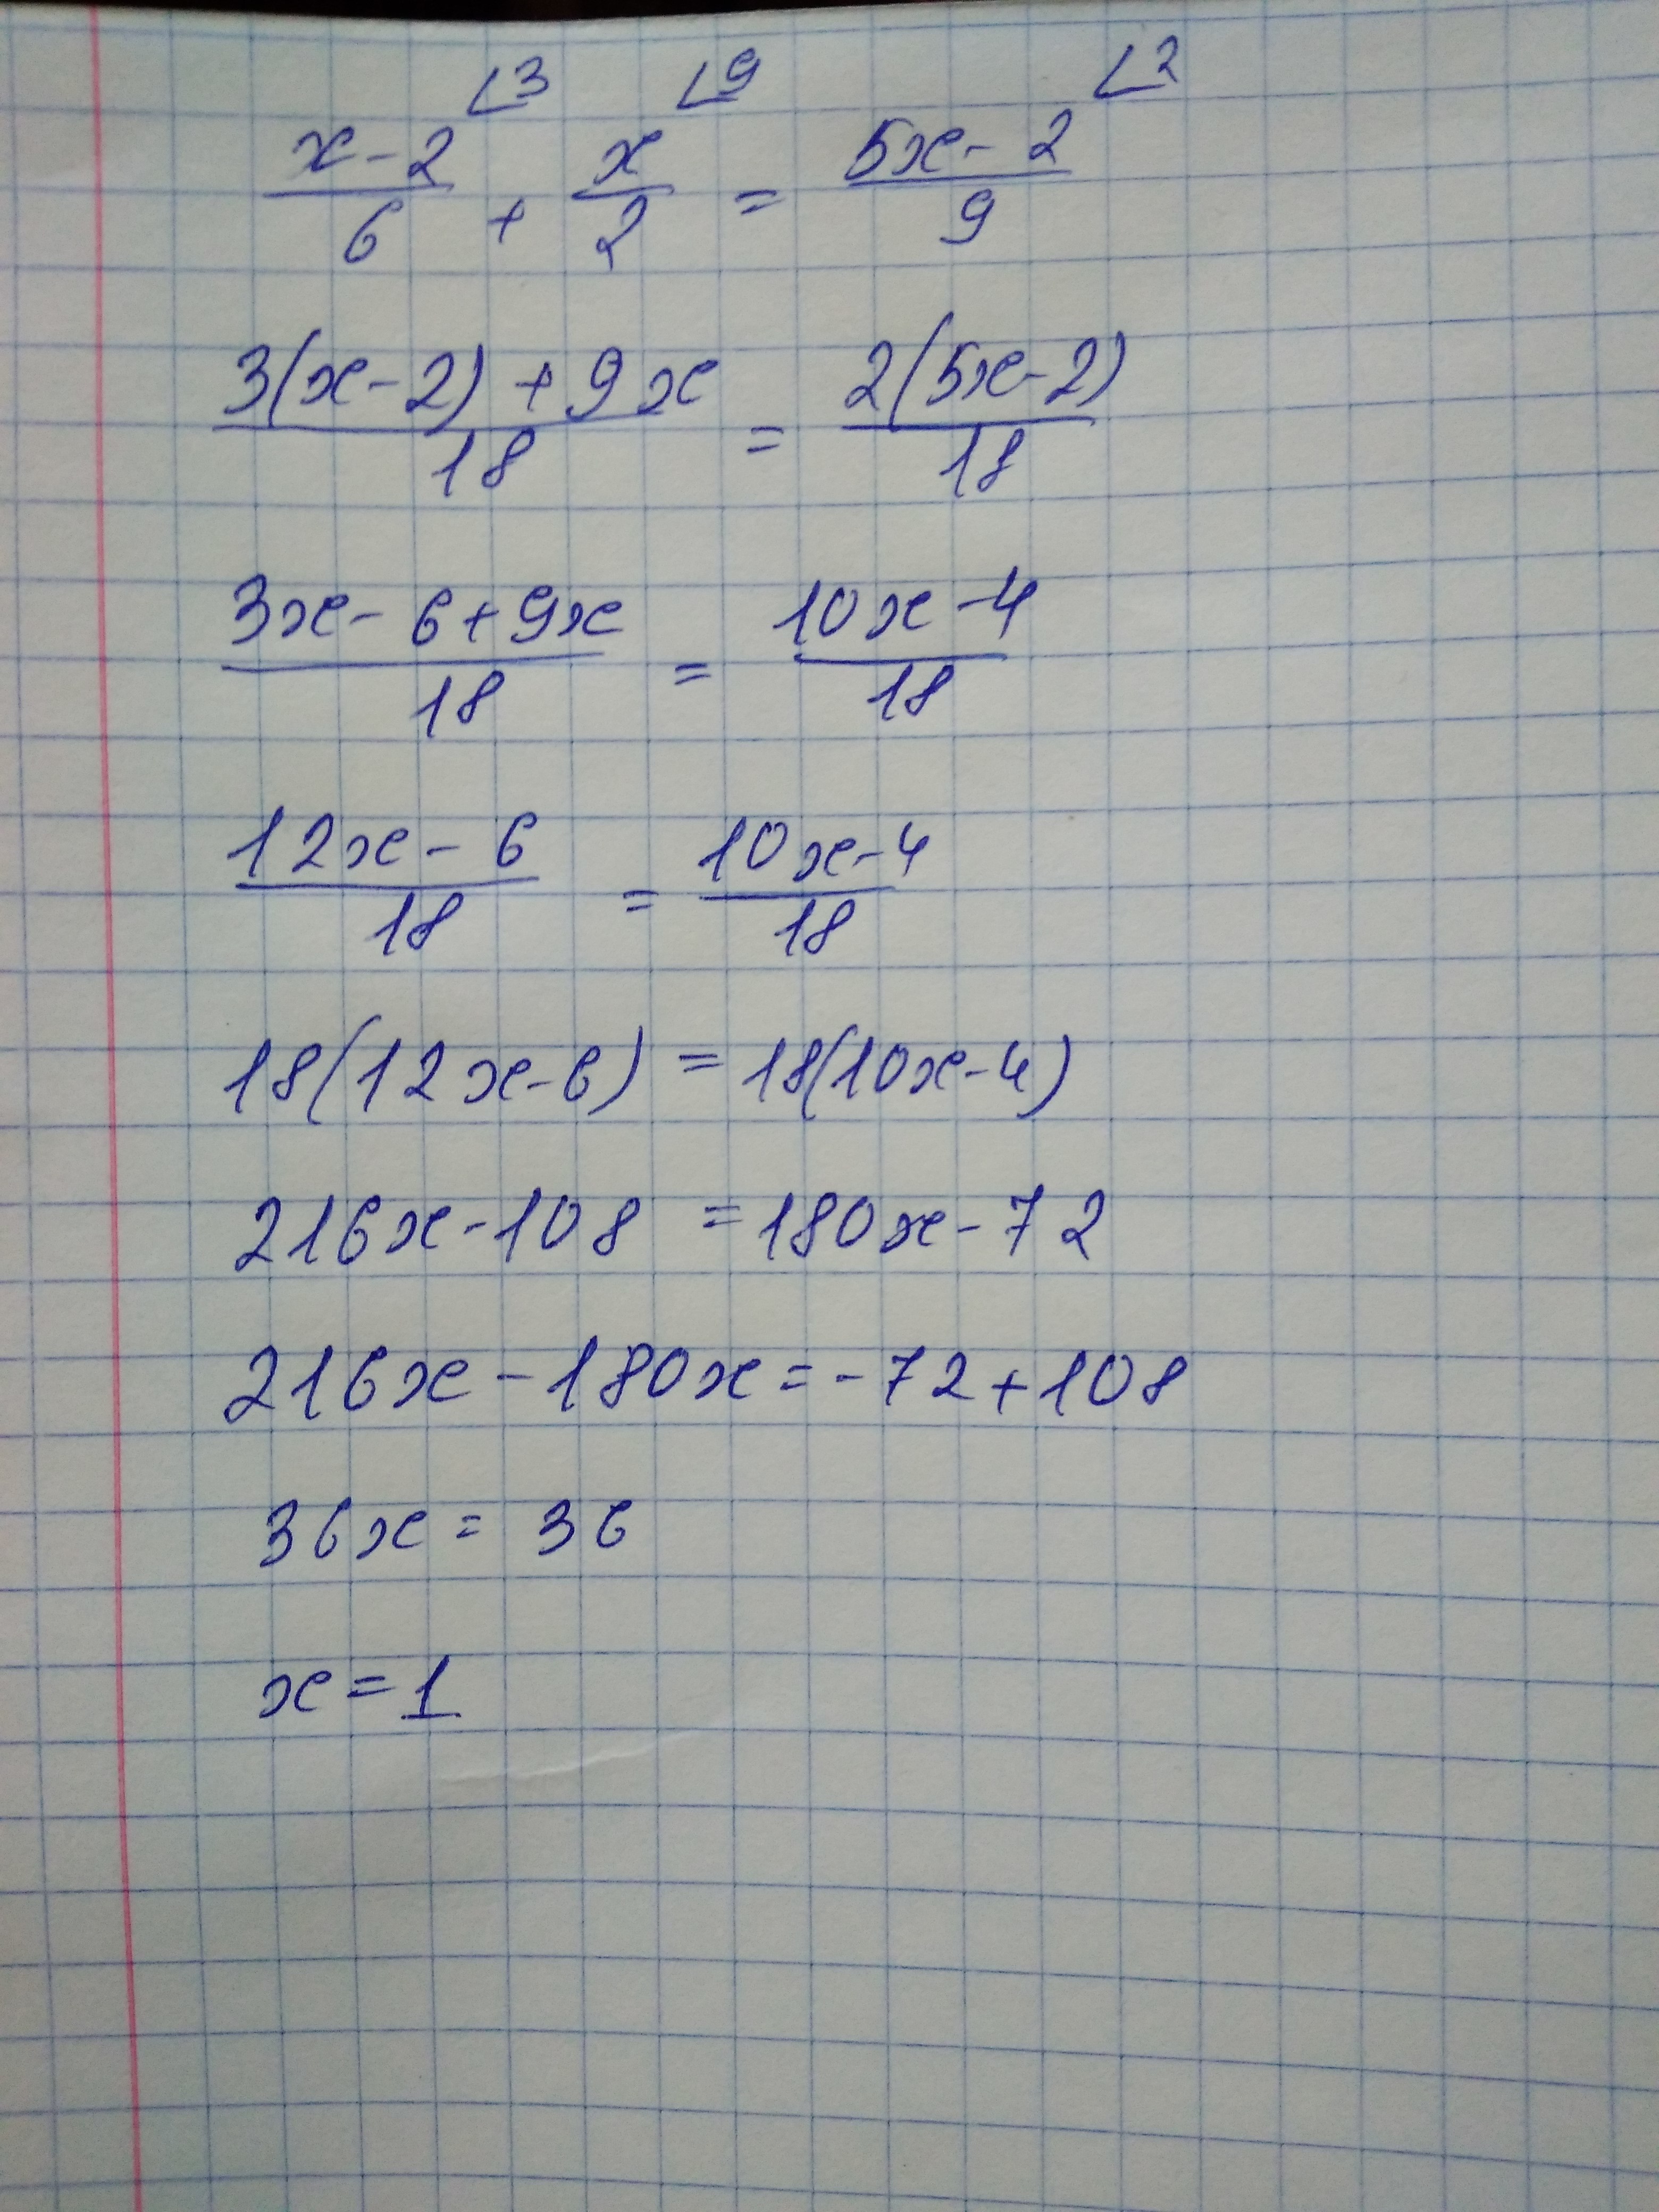 ∠3 ∠9 ∠2
x-2/6 + x/2 = 5x-2/9
3(x-2)+9x/18 = 2(5x-2)/18
3x-6+9x/18 = 10x-4/18
12x-6/18 = 10x-4/18
18(12x-6) = 18(10x-4)
216x-108 = 180x-72
216x-180x=-72+108
36x = 36
x=1